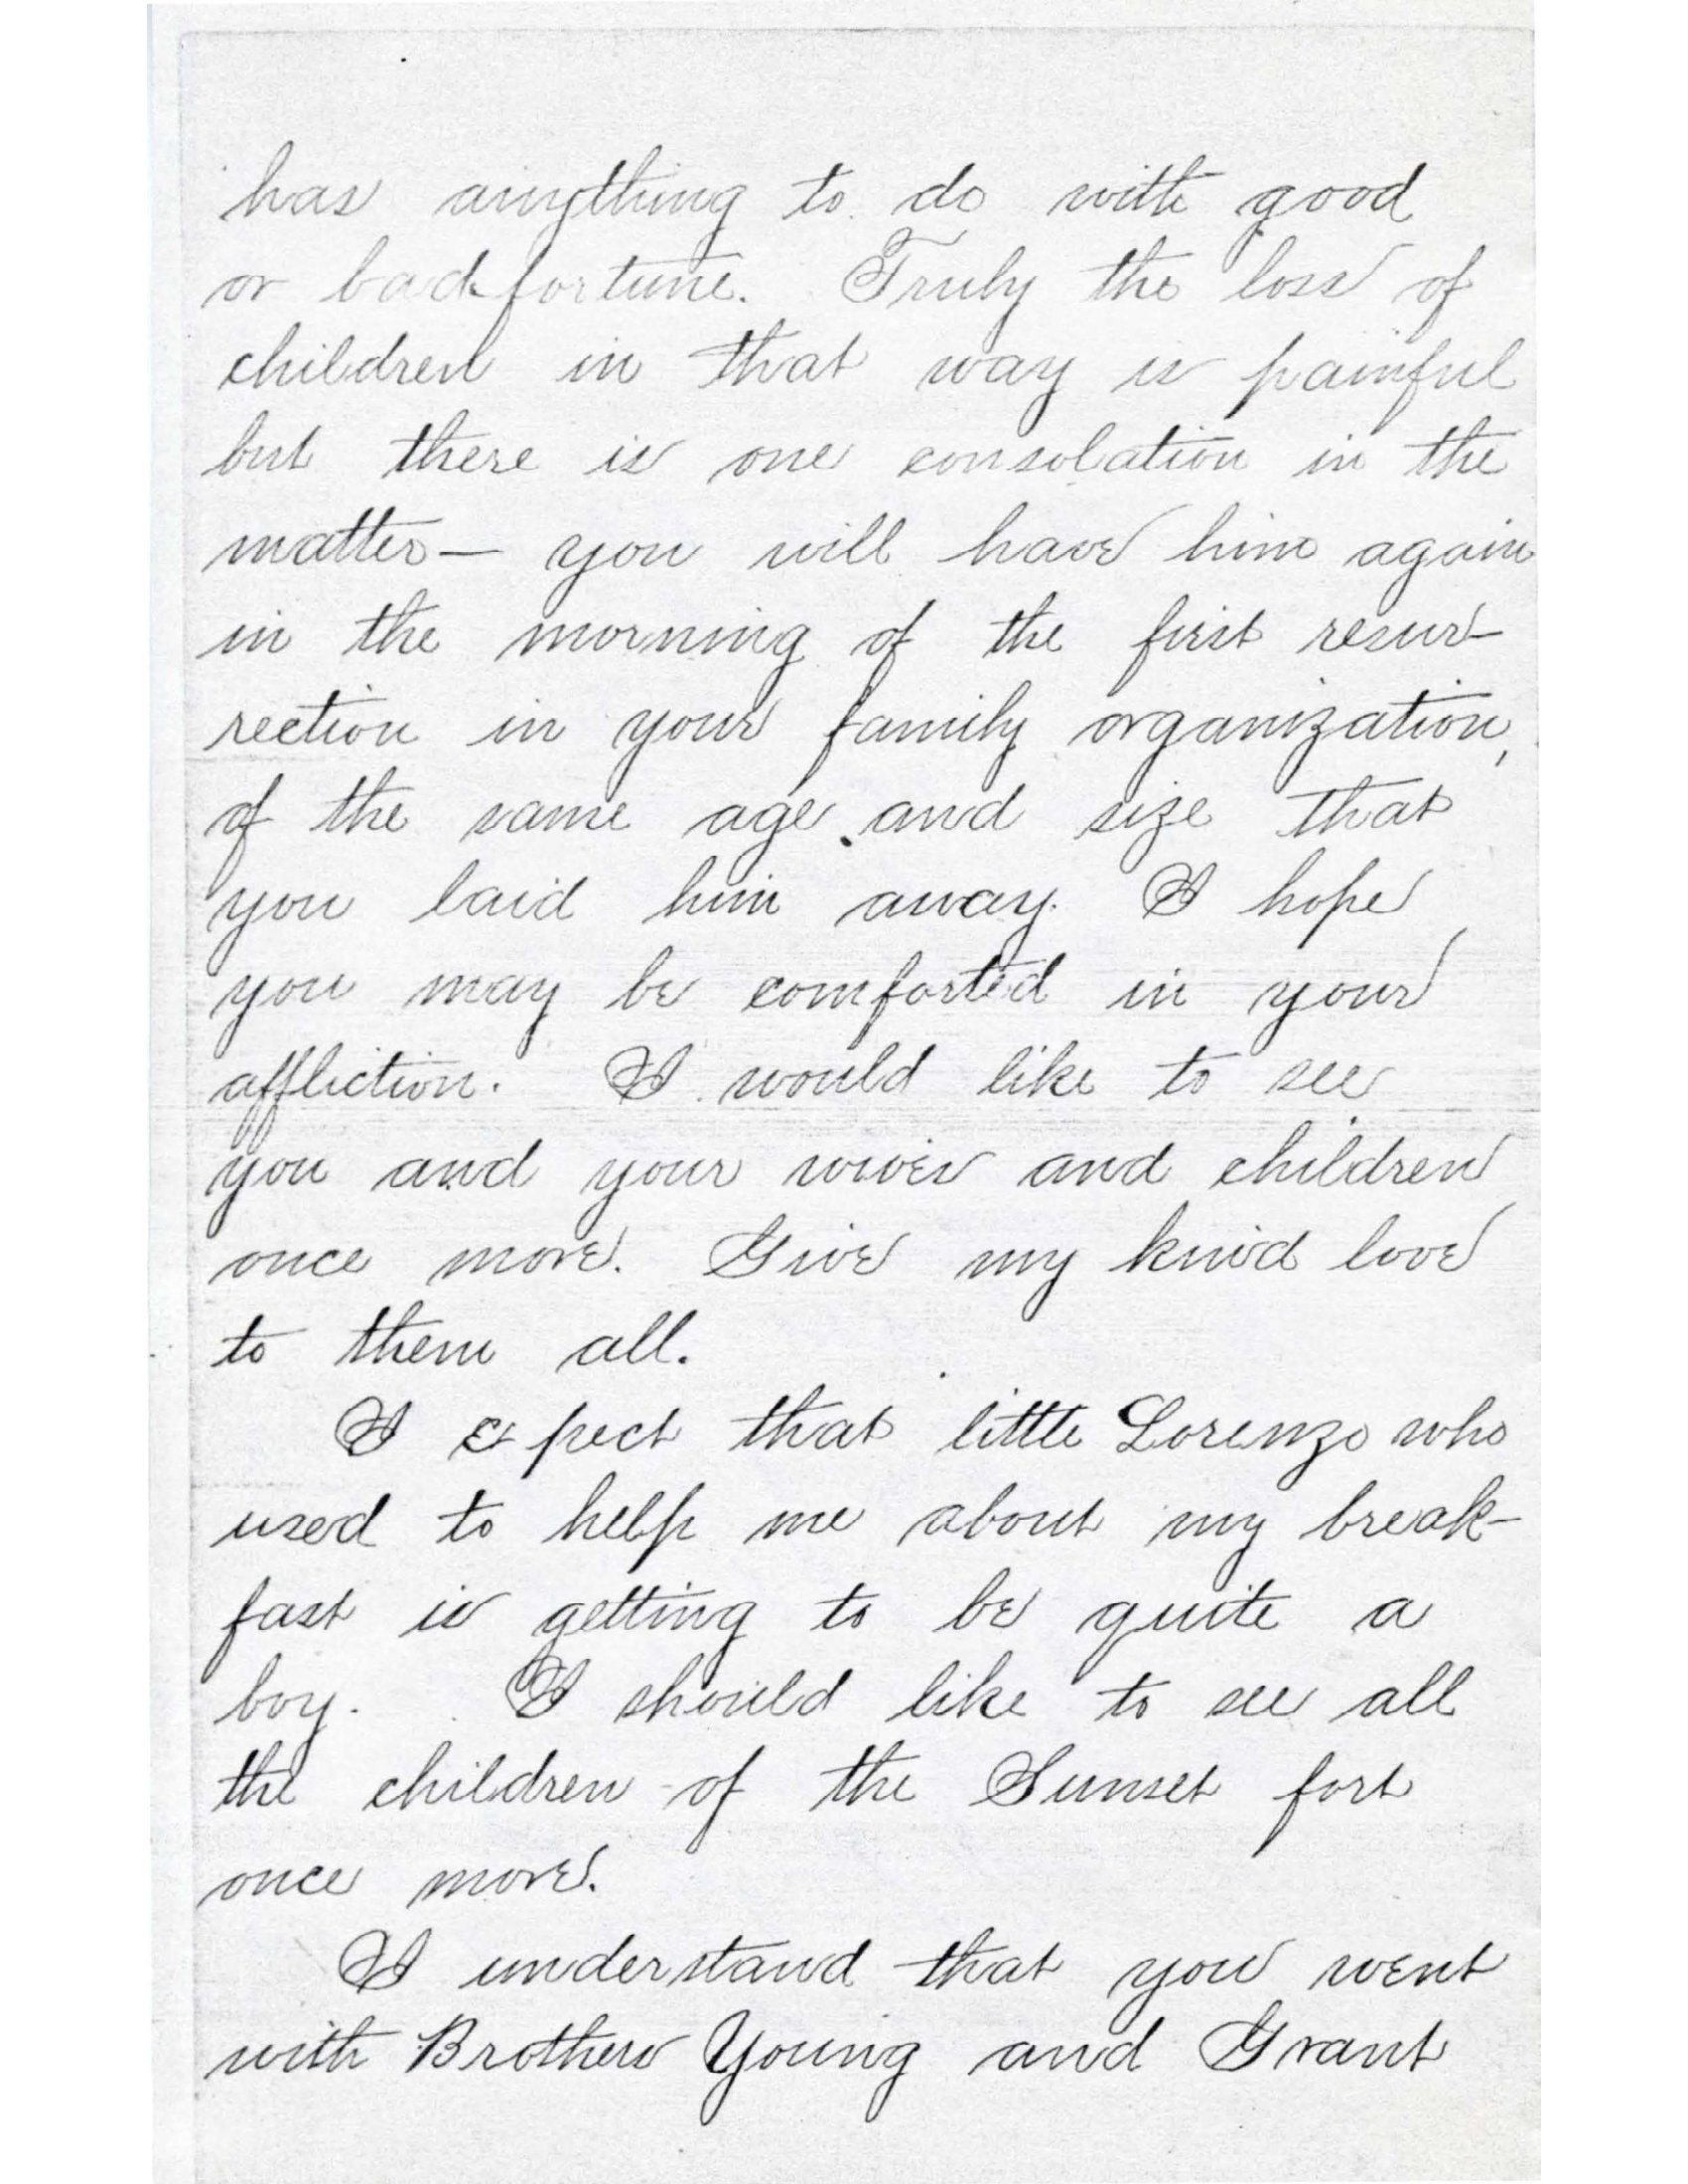 has anything to do with good
or bad fortune. Truly the loss of
children in that way is painful
but there is one consolation in the
matter— you will have him again
in the morning of the first resur-
rection in your family organization,
of the same age and size that
you laid him away. I hope
you may be comforted in your
affliction. I would like to see
you and your wives and children
once more. Give my kind love
to them all.
I expect that little Lorenzo who
used to help me about my break-
fast is getting to be quite a
boy. I should like to see all
the children of the Sunset fort
once more.
I understand that you went
with Brothers Young and Grant